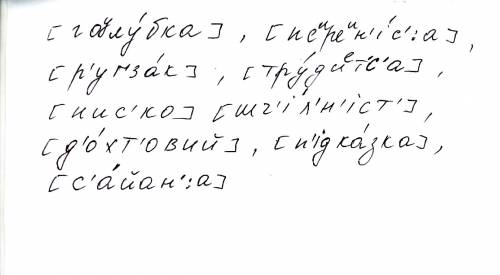 [гоᵘлу́бка], [пеᵘреᵘн'і́с':а],
[р'угза́к], [тру́диеᵗс'а],
[нис'ко] [шч'і́л'н'іст'],
[д'о́хт'овий], [п'ідка́зка],
[с'а́йан':а]